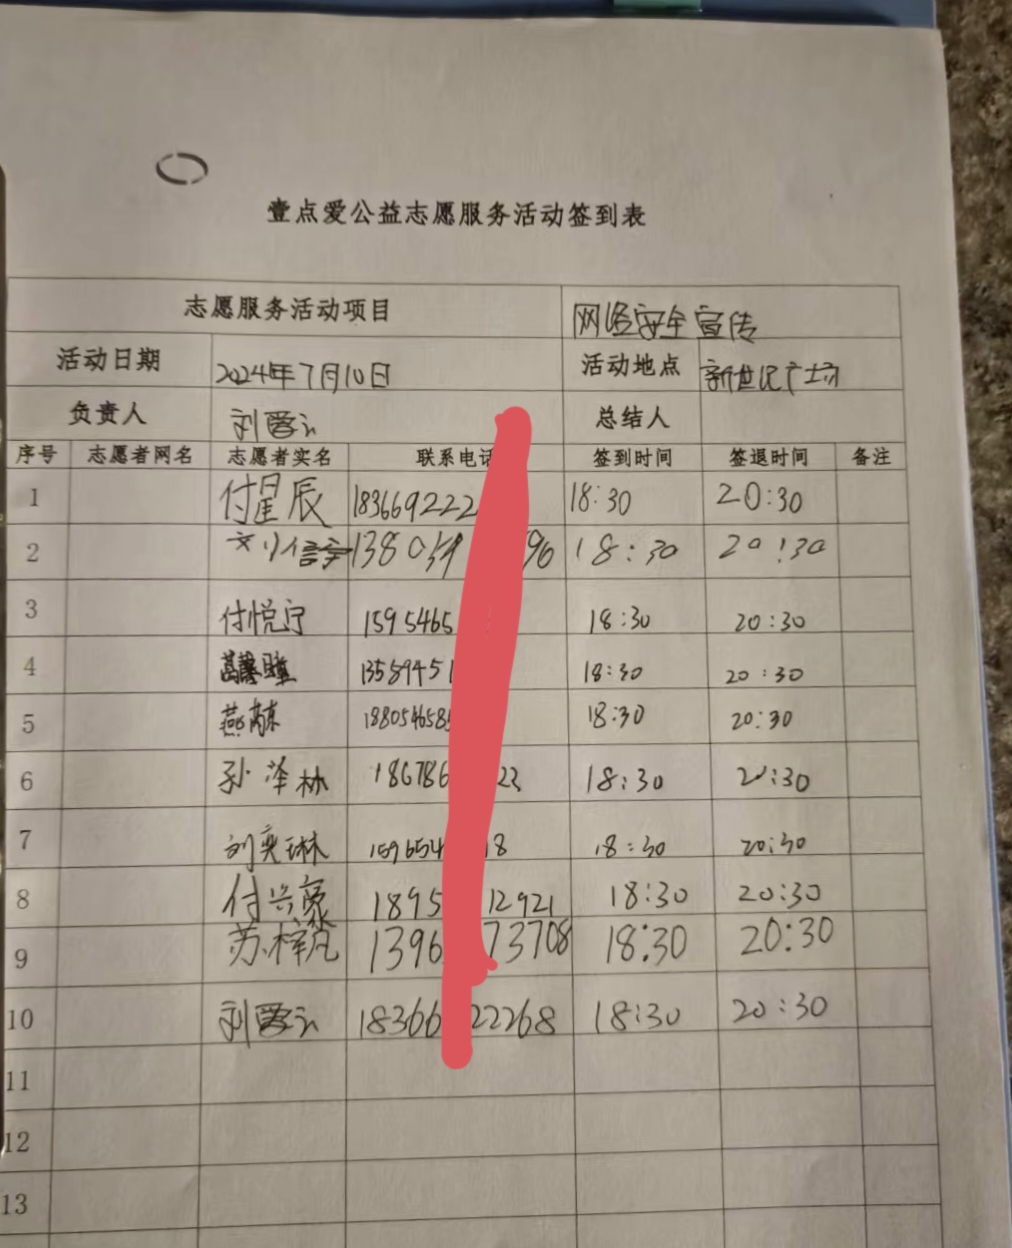 壹点爱公益志愿服务活动签到表
志愿服务活动项目 网络安全宣传
活动日期 2024年7月10日 活动地点 新世纪广场
负责人 刘 总结人
序号 志愿者网名 志愿者实名 联系电话 签到时间 签退时间 备注
1 付星辰 183669222 18:30 20:30
2 13805 90 18:30 20:30
3 付悦宁 1595465 18:30 20:30
4 1358945 18:30 20:30
5 燕 188054658 18:30 20:30
6 孙泽林 186786 22 18:30 20:30
7 刘奕琳 159654 18 18:30 20:30
8 付兴豪 1895 12921 18:30 20:30
9 苏梓凡 1396 73708 18:30 20:30
10 刘 18366 22268 18:30 20:30
11
12
13